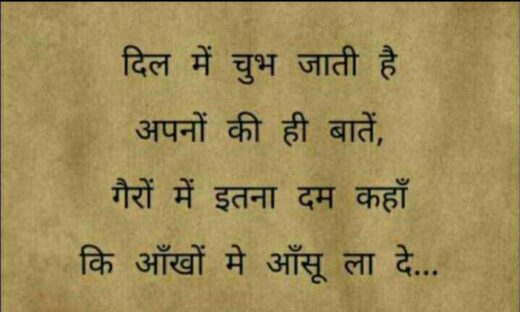 दिल में चुभ जाती है
अपनों की ही बातें,
गैरों में इतना दम कहाँ
कि आँखों मे आँसू ला दे...